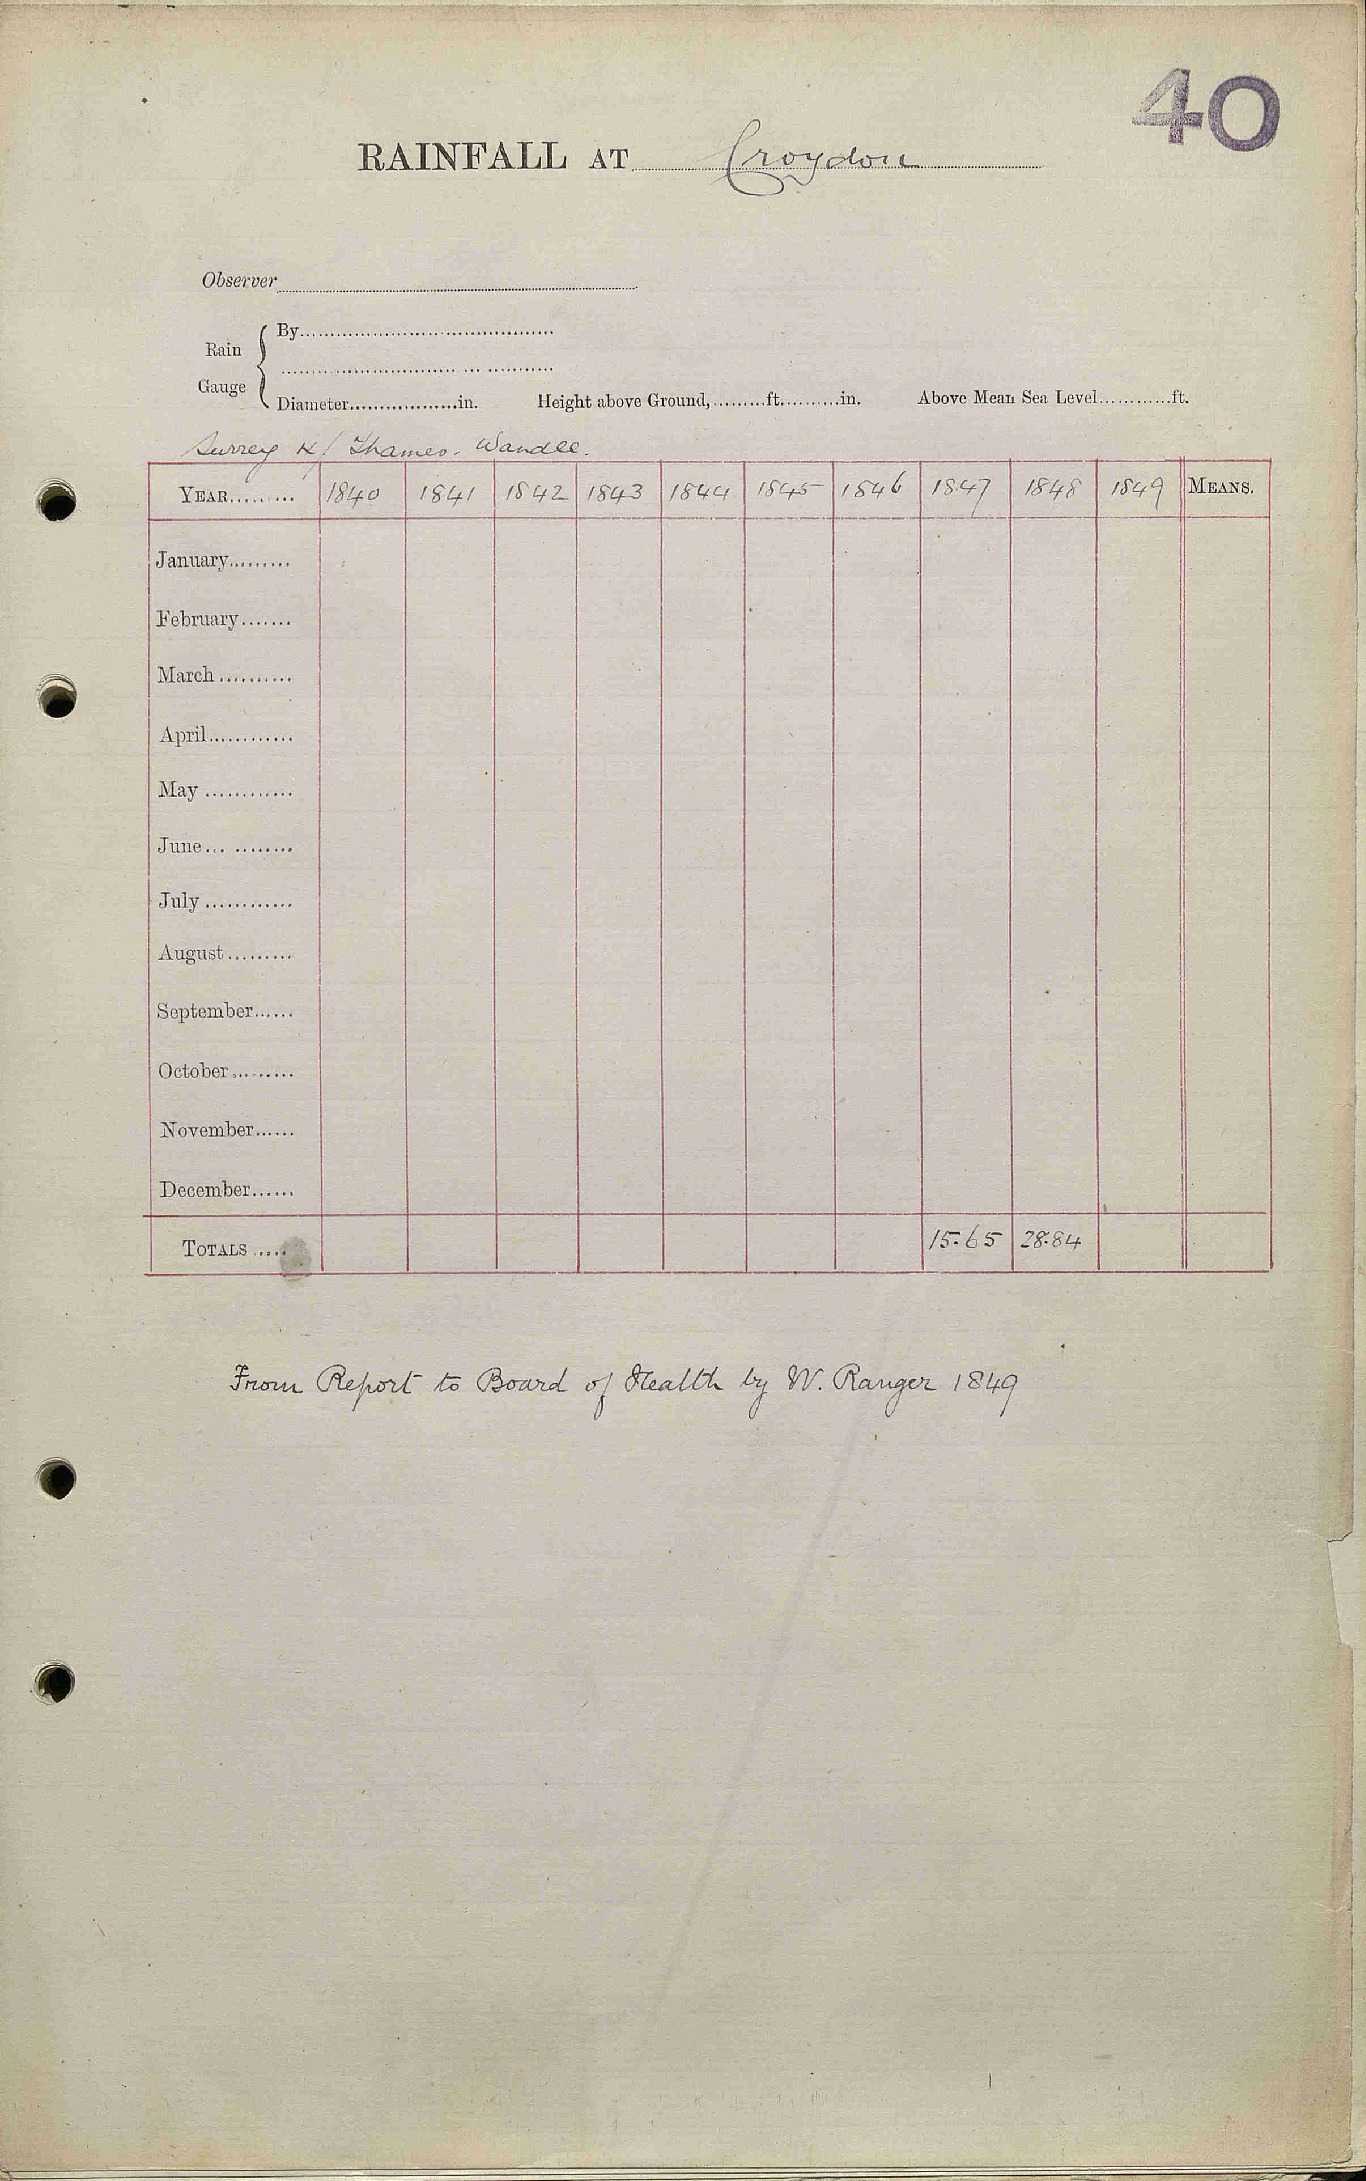 40
RAINFALL AT Croydon
Observer
Rain Gauge
By
Diameter in. Height above Ground, ft. in. Above Mean Sea Level ft.
Surrey Thames. Wandle.
YEAR 1840 1841 1842 1843 1844 1845 1846 1847 1848 1849 MEANS.
January
February
March
April
May
June
July
August
September
October
November
December
TOTALS 15.65 28.84
From Report to Board of Health by W. Ranger 1849